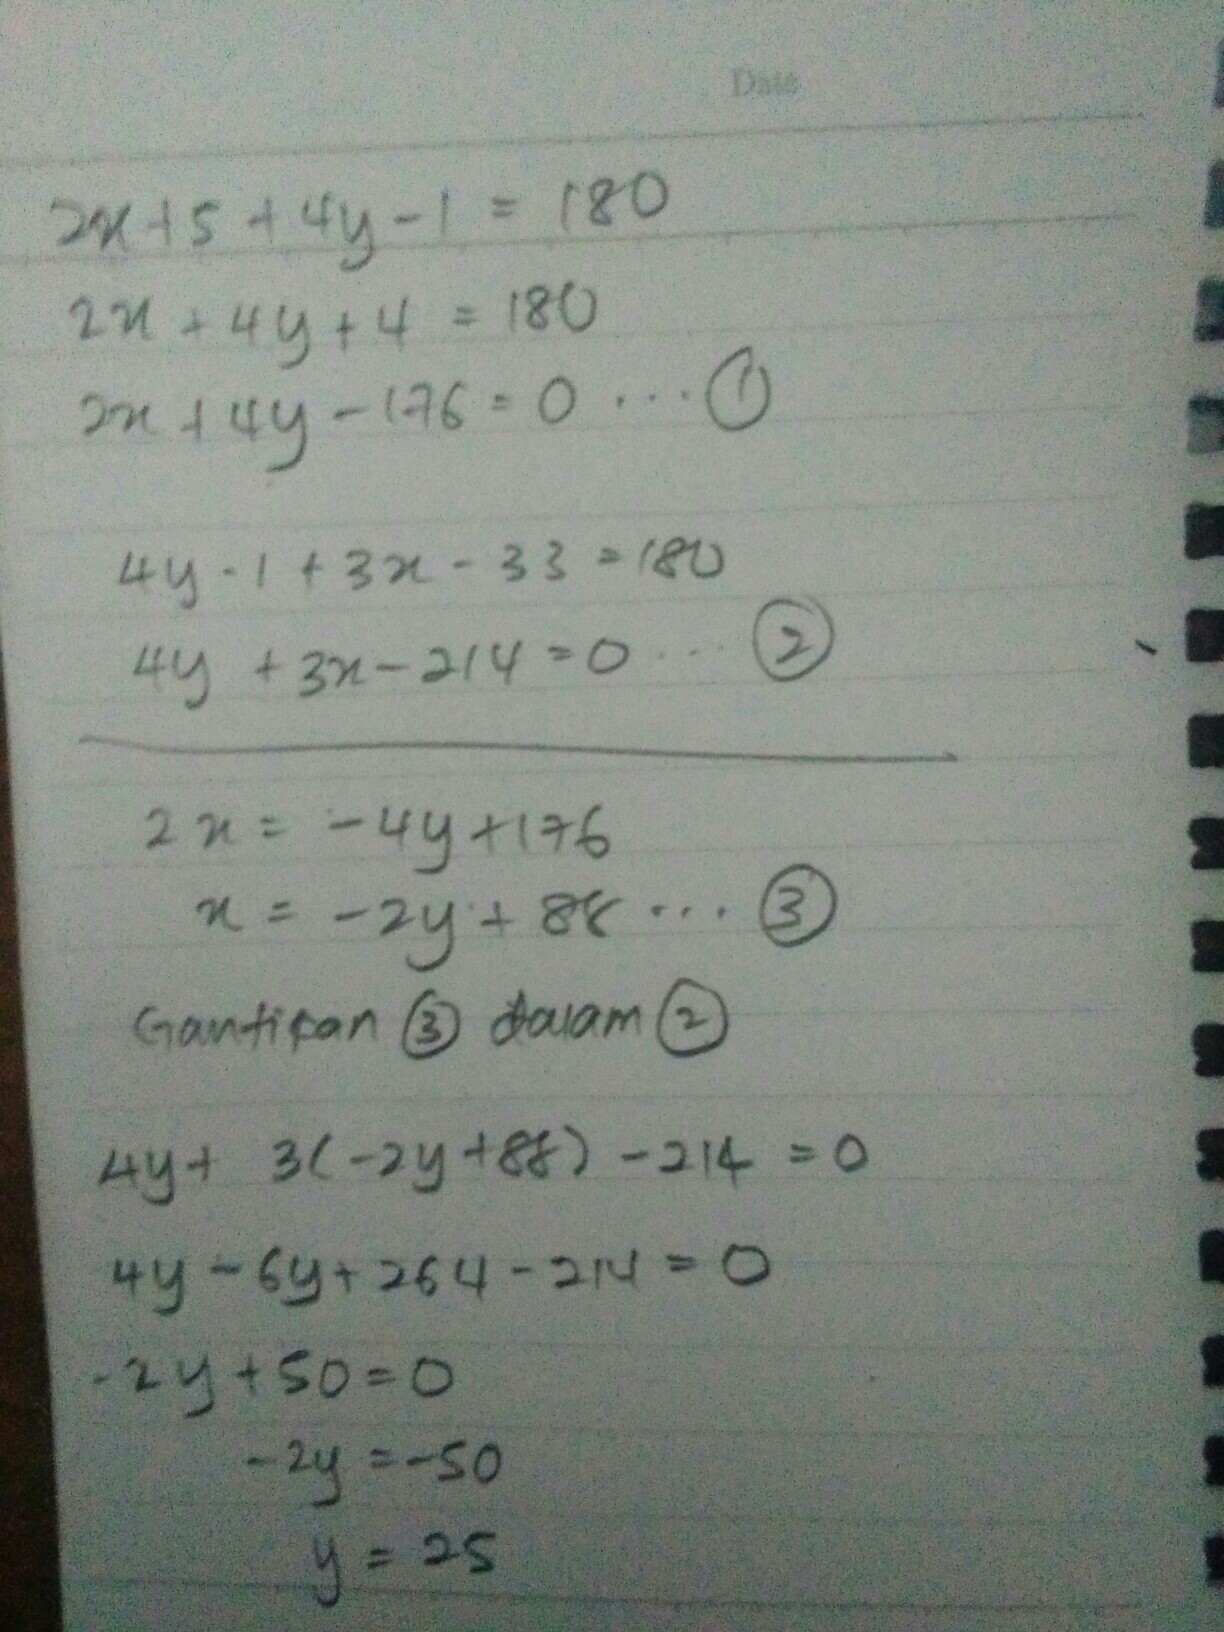 Date
2x+5+4y-1 = 180
2x+4y+4 = 180
2x+4y-176=0 ... ①
4y-1+3x-33=180
4y+3x-214=0 ... ②
2x= -4y+176
x = -2y+88 ... ③
Gantikan ③ dalam ②
4y+ 3(-2y+88) -214 =0
4y-6y+264-214=0
-2y+50=0
-2y=-50
y=25